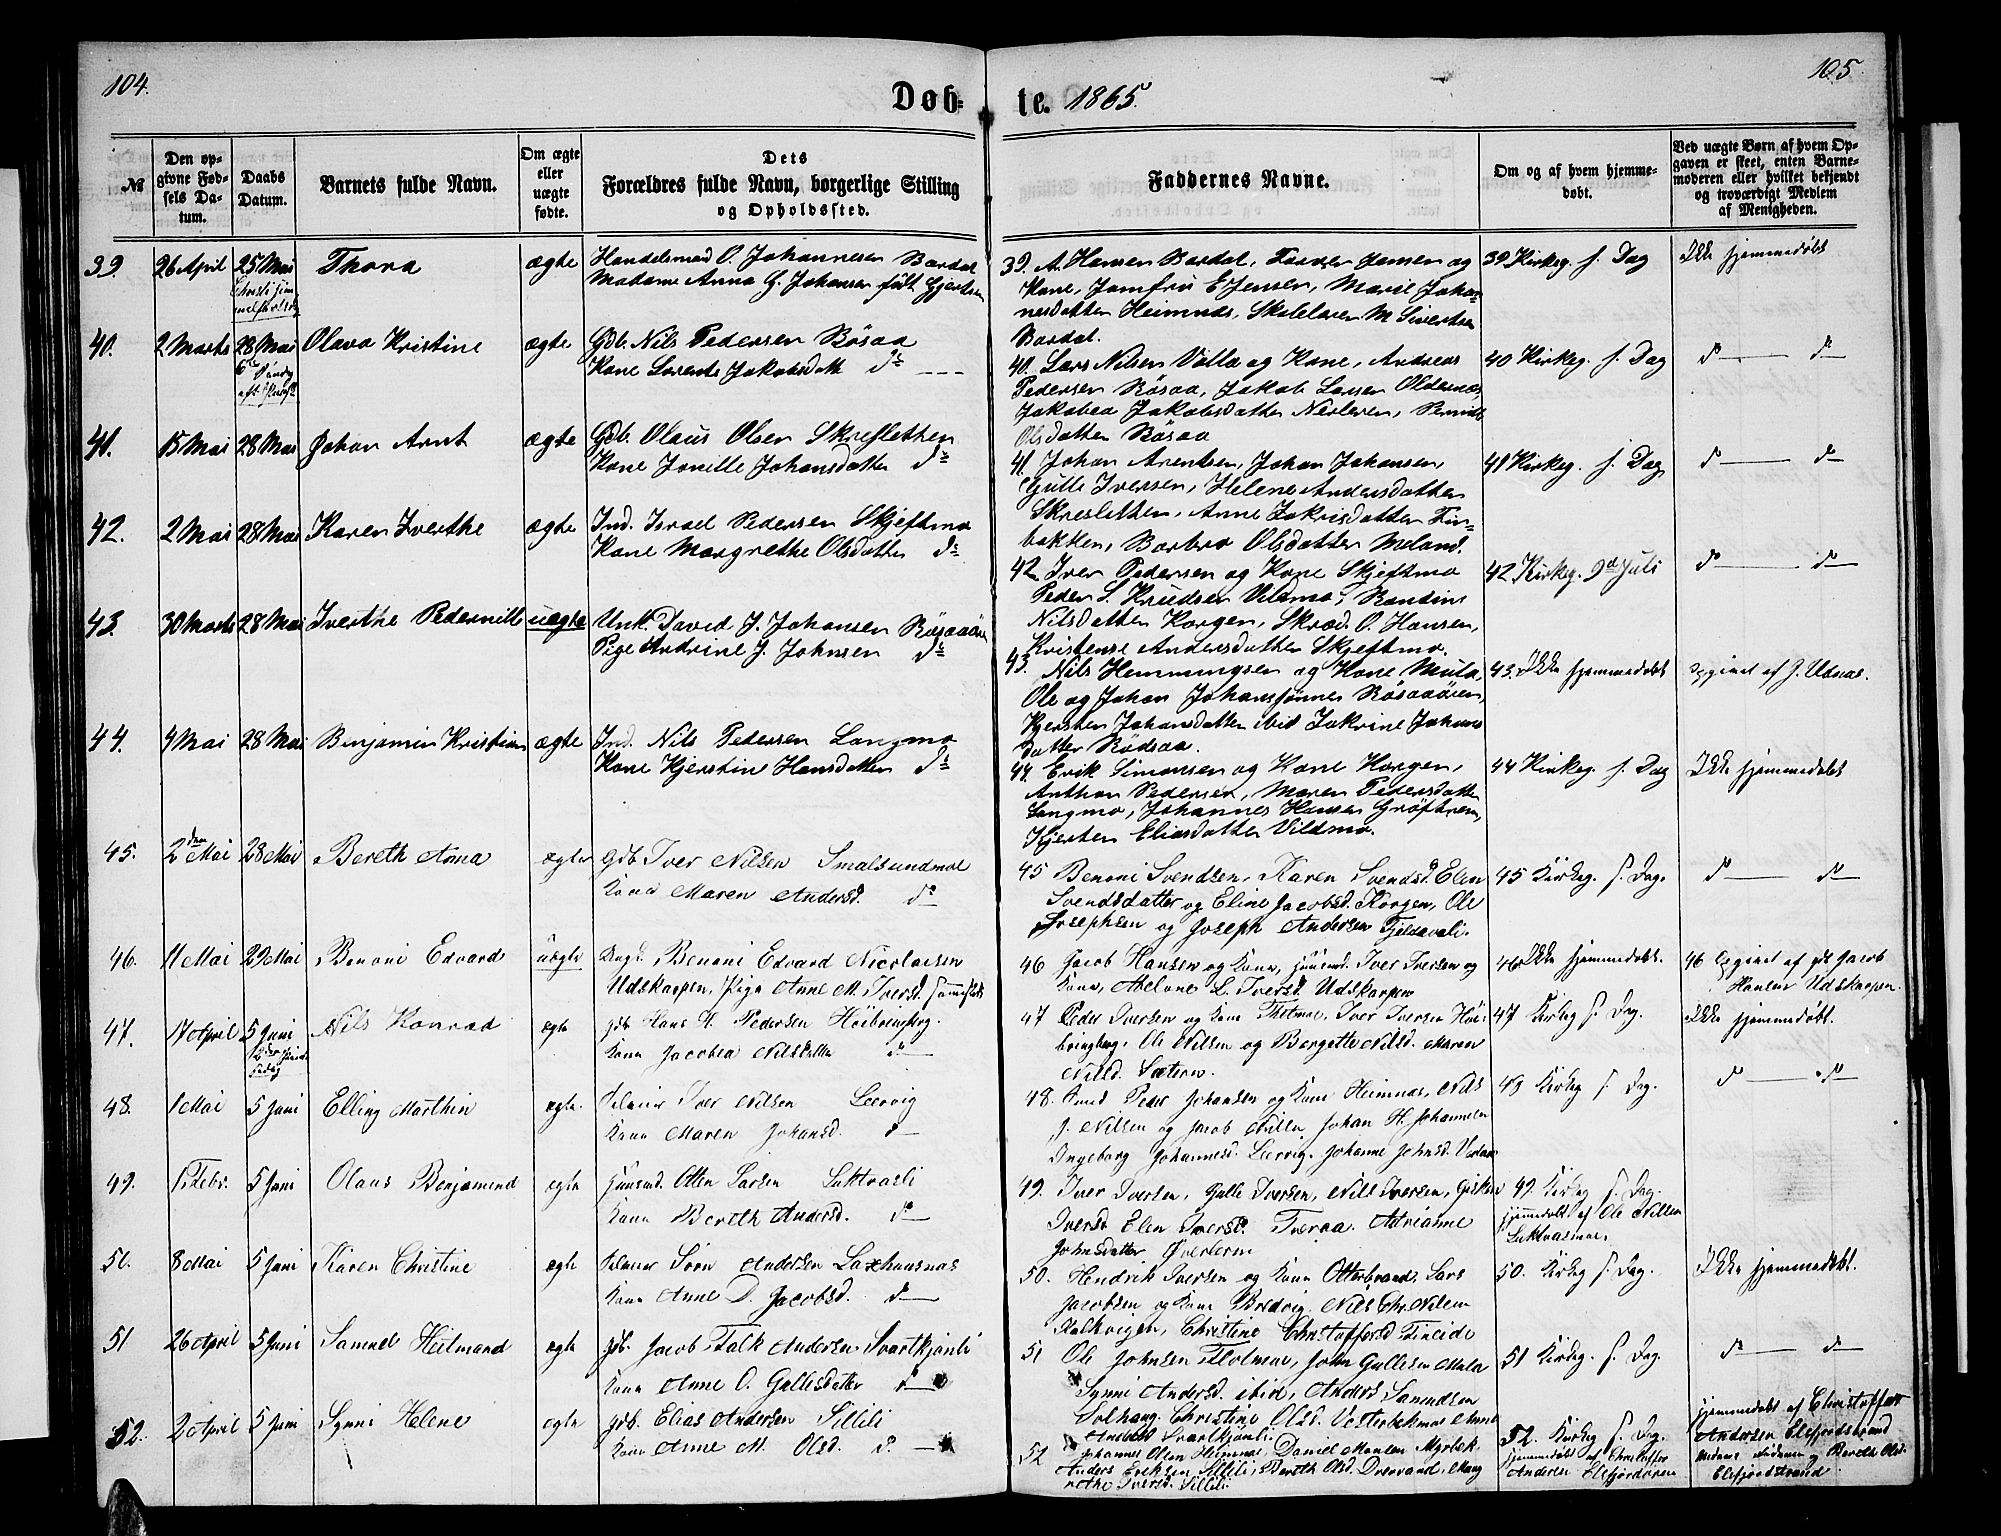 104.
105.
Døb-
te. 1865.
№
Den op-
givne Fød-
sels Da-
tum.
Daabs
Datum.
Barnets fulde Navn.
Om ægte
eller
uægte
fødte.
Dets
Forældres fulde Navn, borgerlige Stilling
og Opholdssted.
Faddernes Navne.
Om og af hvem hjemme-
døbt.
Ved uægte Børn af hvem Op-
gaven er skeet, enten Barne-
moderen eller hvilket bekjendt
og troværdigt Medlem
af Menigheden.
39. 26 April 25 Mai Thora ægte Handelsmad O. Johannesen Bardal
Madame Anna G. Johansen født Gjertsen
39. A. Hansen Bardal, Jensen og
Kone, Jomfru E Jensen, Marie Johan-
nesdatter Heimnes, M Sivertsen
Bardal.
39 Kirkeg. s. Dag
Ikke hjemmedøbt
40. 2 Marts 28 Mai Olava Kristine ægte Gdb. Nils Pedersen Røsaa
Kone Lorents Jakobsdatt do
40. Lars Nilsen Valla og Kone, Andreas
Pedersen Røsaa, Jakob Larsen Oldernæs
Jakobea Jakobsdatter
Olsdatter Røsaa
40 Kirkeg. s. Dag
do do
41. 15 Mai 28 Mai Johan Arnt ægte Gdb. Olaus Olsen Skresletten
Kone Jonille Johansdatter do
41. Johan Arentsen, Johan Johansen,
Gulle Iversen, Helene Andersdatter
Skresletten, Anne Zakrisdatter Fin-
bakken, Barbro Olsdatter Meland.
41 Kirkeg. s. Dag
do do
42. 2 Mai 28 Mai Karen Iverthe ægte Ind. Israel Pedersen Skjeftmo
Kone Margrethe Olsdatter do
42. Iver Pedersen og Kone Skjeftmo
Peder S. Knudsen Vildmo,
Nilsdatter Korgen, Skræd. O. Hansen,
Andersdatter Skjeftmo.
42 Kirkeg. 9d Juli
do do
43. 30 Marts 28 Mai Iverthe Pedernille uægte Unk. David J. Johansen Røsaaøren
Pige Andrine J. Johnsen do
43. Nils Hemmingsen og Kone Mula,
Ole og Johan Johanssønner Røsaaøren,
Kjersten Johansdatter ibid Zakrine Johans
datter Rødsaa.
43. Ikke hjemmedøbt
opgivet af J. Ubnae.
44. 4 Mai 28 Mai Benjamin Kristian ægte Ind. Nils Pedersen Langmo
Kone Kjerstine Hansdatter do
44. Erik Simonsen og Kone Korgen,
Anthon Pedersen, Maren Pedersdatter
Langmo, Johannes Hansen Grøftrem,
Kjersten Eliasdatter Vildmo.
44 Kirkeg. s. Dag
Ikke hjemmedøbt
45. 2den Mai 28 Mai Bereth Anna ægte Gdb Iver Nilsen Smalsundmoe
Kone Maren Andersd. do
45 Benoni Svendsen, Karen Svendsd. Elen
Svendsdatter og Eline Jacobsd. Korgen, Ole
Josephsen og Joseph Andersen Fjeldavli.
45 Kirkeg. s. Dag.
do do
46. 11 Mai 29 Mai Benoni Edvard uægte Ungk. Benoni Edvard Nicolaisen
Udskarpen, Pige Anne M. Iversd. sammesteds
46 Jacob Hansen og Kone, huusmd. Iver Iversen og
Kone, Abelone L. Iversd. Udskarpen
46 Ikke hjemmedøbt.
46 Opgivet af gdb Jacob
Hansen Udskarpen.
47. 17 April 5 Juni Nils Konrad ægte gdb Hans A. Pedersen Høibvingberg.
Kone Jacobea Nilsdatter do
47 Peder Iversen og Kone Thotmoe, Iver Iversen Høi-
bvingberg, Ole Nilsen og Bergette Nilsd. Maren
Nilsd. Sæteren.
47 Kirkeg s. Dag.
Ikke hjemmedøbt.
48. 1 Mai 5 Juni Elling Marthin ægte Selveier Iver Nilsen Leervig
Kone Maren Johansd. do
48. Peder Johansen og Kone Heimnæs, Nils
J. Nilsen og Jacob Nilsen, Johan H. Johannesen
Ingeborg Johannesd. Leervig. Johanne Johnsd.
48 Kirkeg s. Dag.
do do
49. 1 Febr. 5 Juni Olaus Benjamind ægte huusmd. Otten Larsen Luktvasli
Kone Berith Andersd. do
49. Iver Iversen, Gulle Iversen, Nils Iversen,
Iversd Elen Iversd. Tveraa. Adrianne
Johnsdatter Øverleren
49. Kirkeg s. Dag.
hjemmedøbt af Ole Nilsen
Luktvasmoe.
50. 8 Mai 5 Juni Karen Christine ægte Selveier Sørn Andersen Laxhusnæs
Kone Anne D. Jacobsd. do
50. Hendrik Iversen og Kone Otterbrand. Lars
Jacobsen og Kone Bredvig. Nils Chr. Nilsen
Kalkvigen, Christine Christoffersd Fineide
50. Kirkeg s. Dag.
Ikke hjemmedøbt.
51 26 April 5 Juni Samuel Heitmand ægte gdb. Jacob Falk Andersen Svartkjønli
Kone Anne O. Gullesdatter do
51 Ole Johnsen Flotmoe, John Gullesen Mula
Synni Andersd. ibid, Anders Samuelsen
Solhaug. Christine Olsd. Vesterbekmoe Anne
Andersd Svartkjønli.
51 Kirkeg. s. Dag.
do do
52. 2 April 5 Juni Synni Helene ægte gdb. Elias Andersen Sillili
Kone Anne M. Olsd. do
52 Johannes Olsen Heimnæs. Daniel Hansen Myrbek.
Anders Eriksen Sillili, Berith Olsd. Drevvand, Marg
rethe Iversd. Sillili.
52. Kirkeg s. Dag.
hjemmedøbt af Christoffer
Andersen Elsfjordøren
hjemmedøbt af Christoffer
Andersen Elsfjordstrand
Berith Olsd.
Elsfjordstrand.